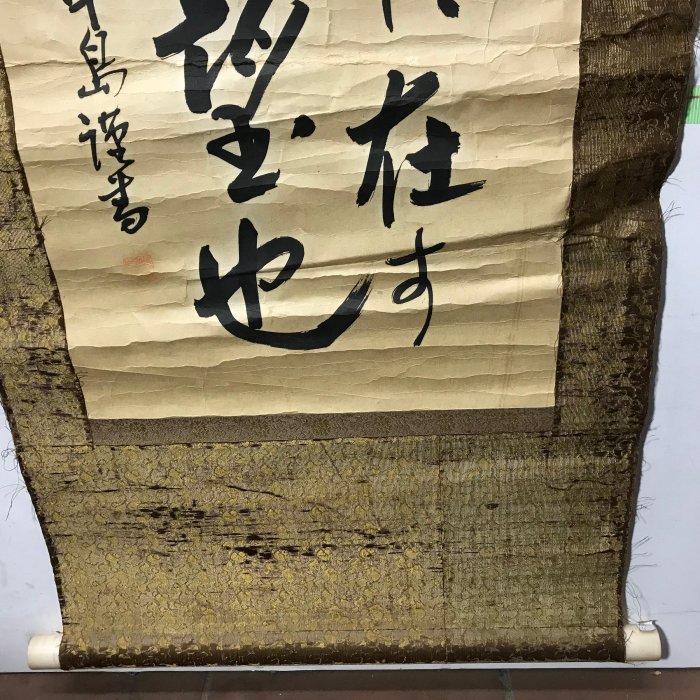 在す
望也
島謹書